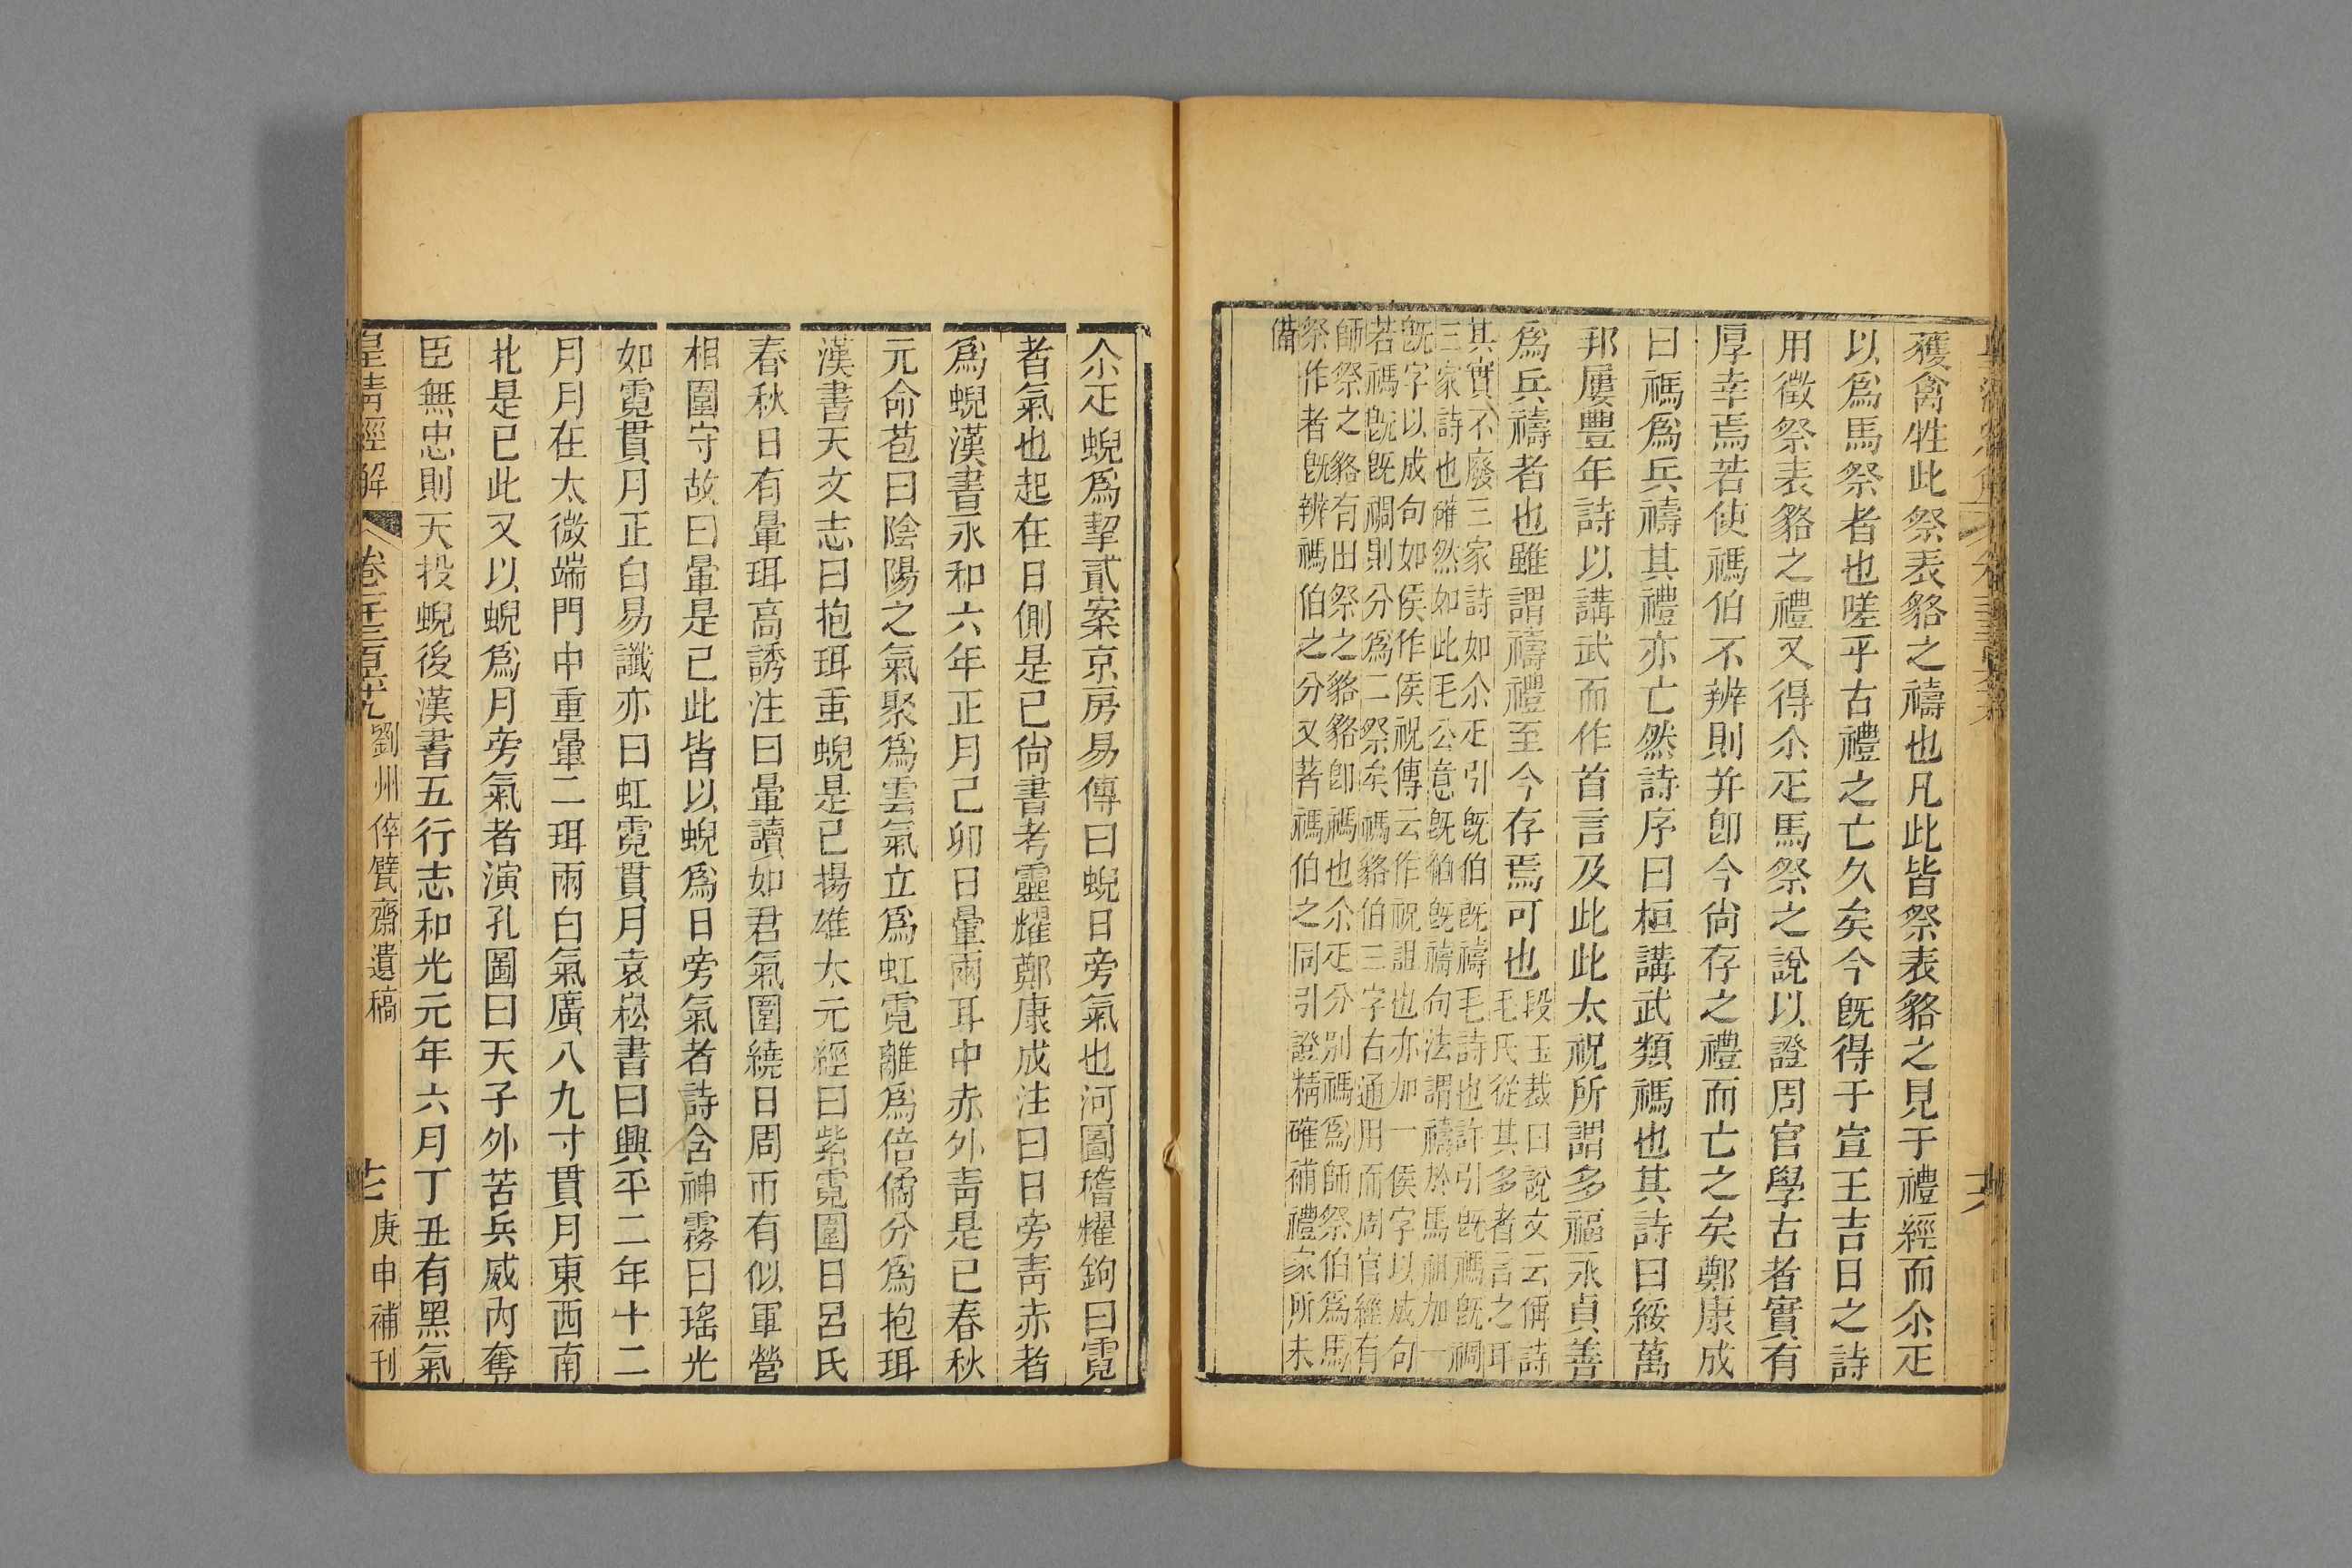 獲禽牲此祭表貉之禱也凡此皆祭表貉之見于禮經而尒疋
以爲馬祭者也嗟乎古禮之亡久矣今旣得于宣王吉日之詩
用徵祭表貉之禮又得尒疋馬祭之說以證周官學古者實有
厚幸焉若使禡伯不辨則并卽今尙存之禮而亡之矣鄭康成
曰禡爲兵禱其禮亦亡然詩序曰桓講武類禡也其詩曰綏萬
邦屢豐年詩以講武而作首言及此此太祝所謂多福永貞善
爲兵禱者也雖謂禱禮至今存焉可也
段玉裁曰說文云偁詩
毛氏從其多者言之耳
其實不廢三家詩如尒疋引旣伯旣禱毛詩也許引旣禡旣禂
三家詩也雖然如此毛公意旣伯旣禱句法謂禱於馬祖加一
旣字以成句如侯作侯祝傳云作祝詛也亦加一侯字以成句
若禡旣旣禂則分爲二祭矣禡貉伯三字右通用而周官經有
師祭之貉有田祭之貉貉卽禡也尒疋分別禡爲師祭伯爲馬
祭作者旣辨禡伯之分又著禡伯之同引證精確補禮家所未
備
尒疋蜺爲挈貳案京房易傳曰蜺日旁氣也河圖稽耀鉤曰霓
者氣也起在日側是已尙書考靈耀鄭康成注曰日旁靑赤者
爲蜺漢書永和六年正月己卯日暈兩耳中赤外靑是已春秋
元命苞曰陰陽之氣聚爲雲氣立爲虹霓離爲倍僪分爲抱珥
漢書天文志曰抱珥䖝蜺是已揚雄太元經曰紫霓圍日呂氏
春秋日有暈珥高誘注曰暈讀如君氣圍繞日周帀有似軍營
相圍守故曰暈是已此皆以蜺爲日旁氣者詩含神霧曰瑤光
如霓貫月正白易讖亦曰虹霓貫月袁崧書曰興平二年十二
月月在太微端門中重暈二珥兩白氣廣八九寸貫月東西南
北是已此又以蜺爲月旁氣者演孔圖曰天子外苦兵威內奪
臣無忠則天投蜺後漢書五行志和光元年六月丁丑有黑氣
皇淸經解 劉州倅甓齋遺稿 庚申補刊